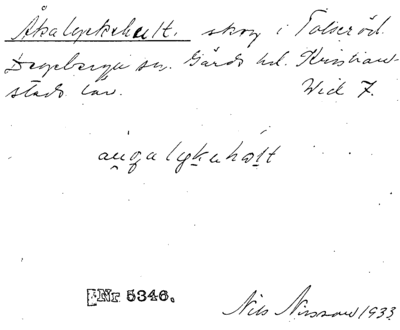 Åkalyckehult. skog i Tolseröd.
Degeberga sn. Gärds hd. Kristian-
stads län. Wid 7.
au̯galyke hølt
Nr 5346.
Nils Nilsson 1933